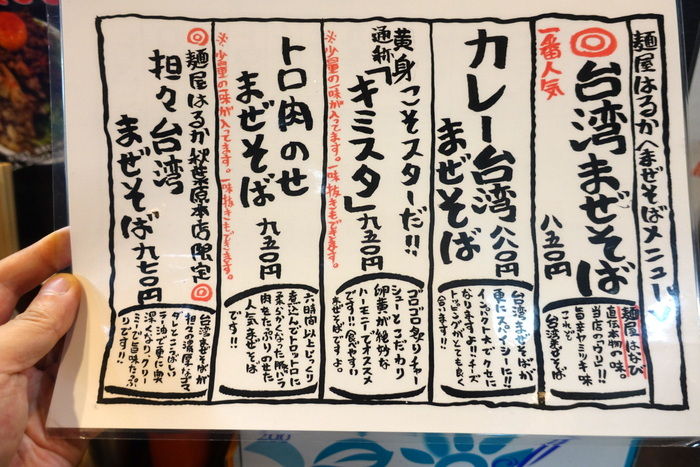 麺屋はるか〈まぜそばメニュー〉
◎台湾まぜそば
一番人気
八五〇円
麺屋はなび
直伝本物の味。
当店のウリ!!
旨辛ヤミツキ味
これぞ
台湾まぜそば
カレー台湾
まぜそば
八八〇円
台湾まぜそばが
更にスパイシーに!!
インパクト大でクセに
なりますよ!!チーズ
トッピングがとても良く
合います!!
黄身こそスターだ!!
通称「キミスタ」
九五〇円
※少量の一味が入ってます。一味抜きもできます。
ゴロゴロ炙りチャー
シューとこだわり
卵黄が絶妙な
ハーモニーでオススメ
です!!食べやすい
まぜそばです。
トロ肉のせ
まぜそば
九五〇円
※少量の一味が入ってます。一味抜きもできます。
六時間以上じっくり
煮込んでトロットロに
柔らかくなった豚バラ
肉をたっぷりのせた
人気まぜそば
です!!
◎麺屋はるか秋葉原本店限定◎
担々台湾
まぜそば
九七〇円
台湾まぜそばが
担々の濃厚なゴマ
ダレとこうばしい
ラー油で更に奥
深くなり、クリー
ミーで旨味たっぷ
りです!!